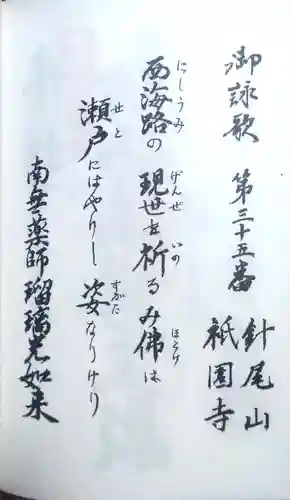 御詠歌 第三十五番
針尾山
祇園寺
西海路の 現世を祈るみ佛は
にしうみ げんぜ いの ほとけ
瀬戸にはやりし 姿なりけり
せと すがた
南無薬師瑠璃光如来